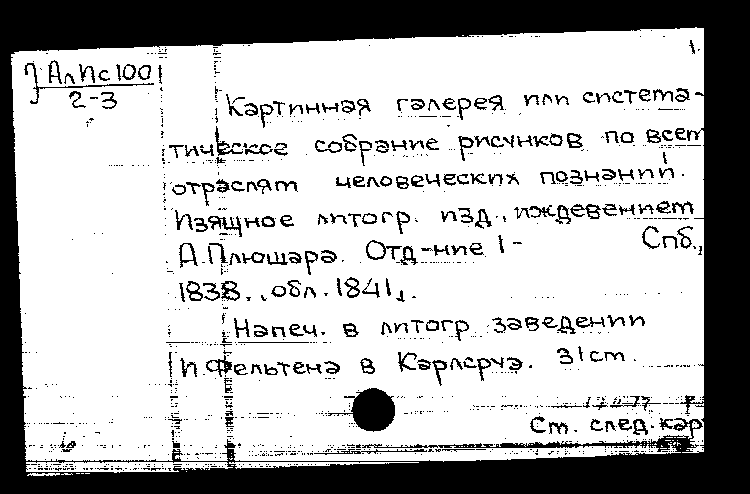 1.
АлПс100
2-3
Картинная галерея или система-
тическое собрание рисунков по всем
отраслям человеческих познаний.
Изящное литогр. изд., иждевением
А.Плюшара. Отд-ние 1- Спб.,
1838., обл. 1841,.
Напеч. в литогр заведении
И.Фельтена в Карлсруэ. 31cm.
Cm. след. кар
6